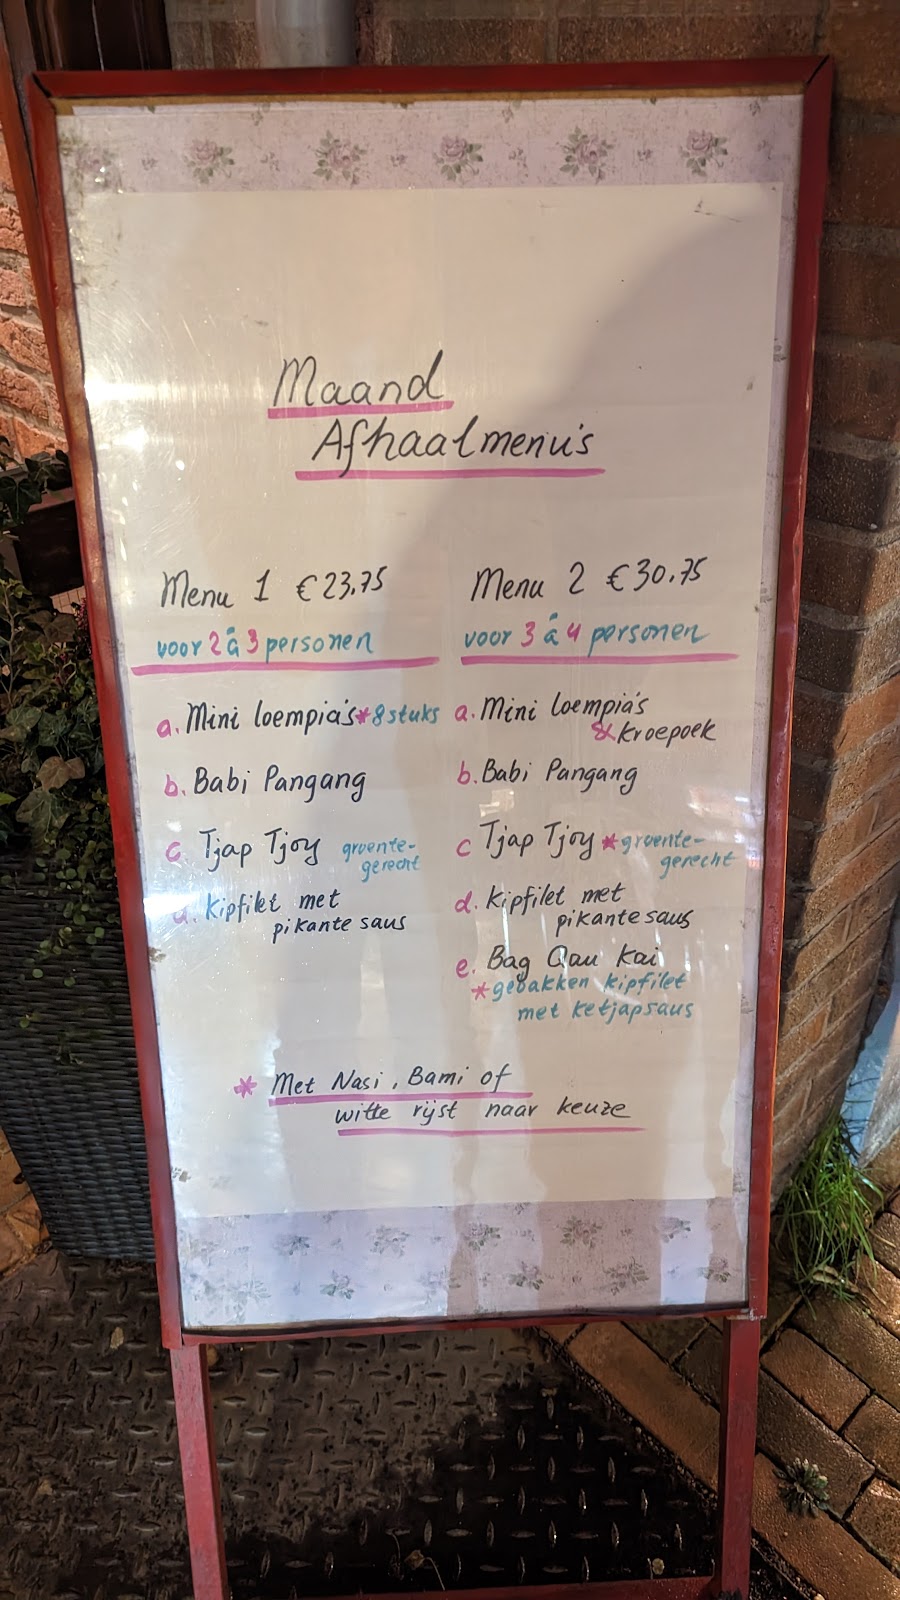 Maand
Afhaalmenu's
Menu 1 €23,75
voor 2 à 3 personen
a. Mini loempia's * 8 stuks
b. Babi Pangang
c. Tjap Tjoy groente-
gerecht
d. Kipfilet met
pikante saus
Menu 2 €30,75
voor 3 à 4 personen
a. Mini loempia's
& kroepoek
b. Babi Pangang
c Tjap Tjoy * groente-
gerecht
d. Kipfilet met
pikante saus
e. Bag Qau Kai
* gebakken kipfilet
met ketjapsaus
* Met Nasi, Bami of
witte rijst naar keuze